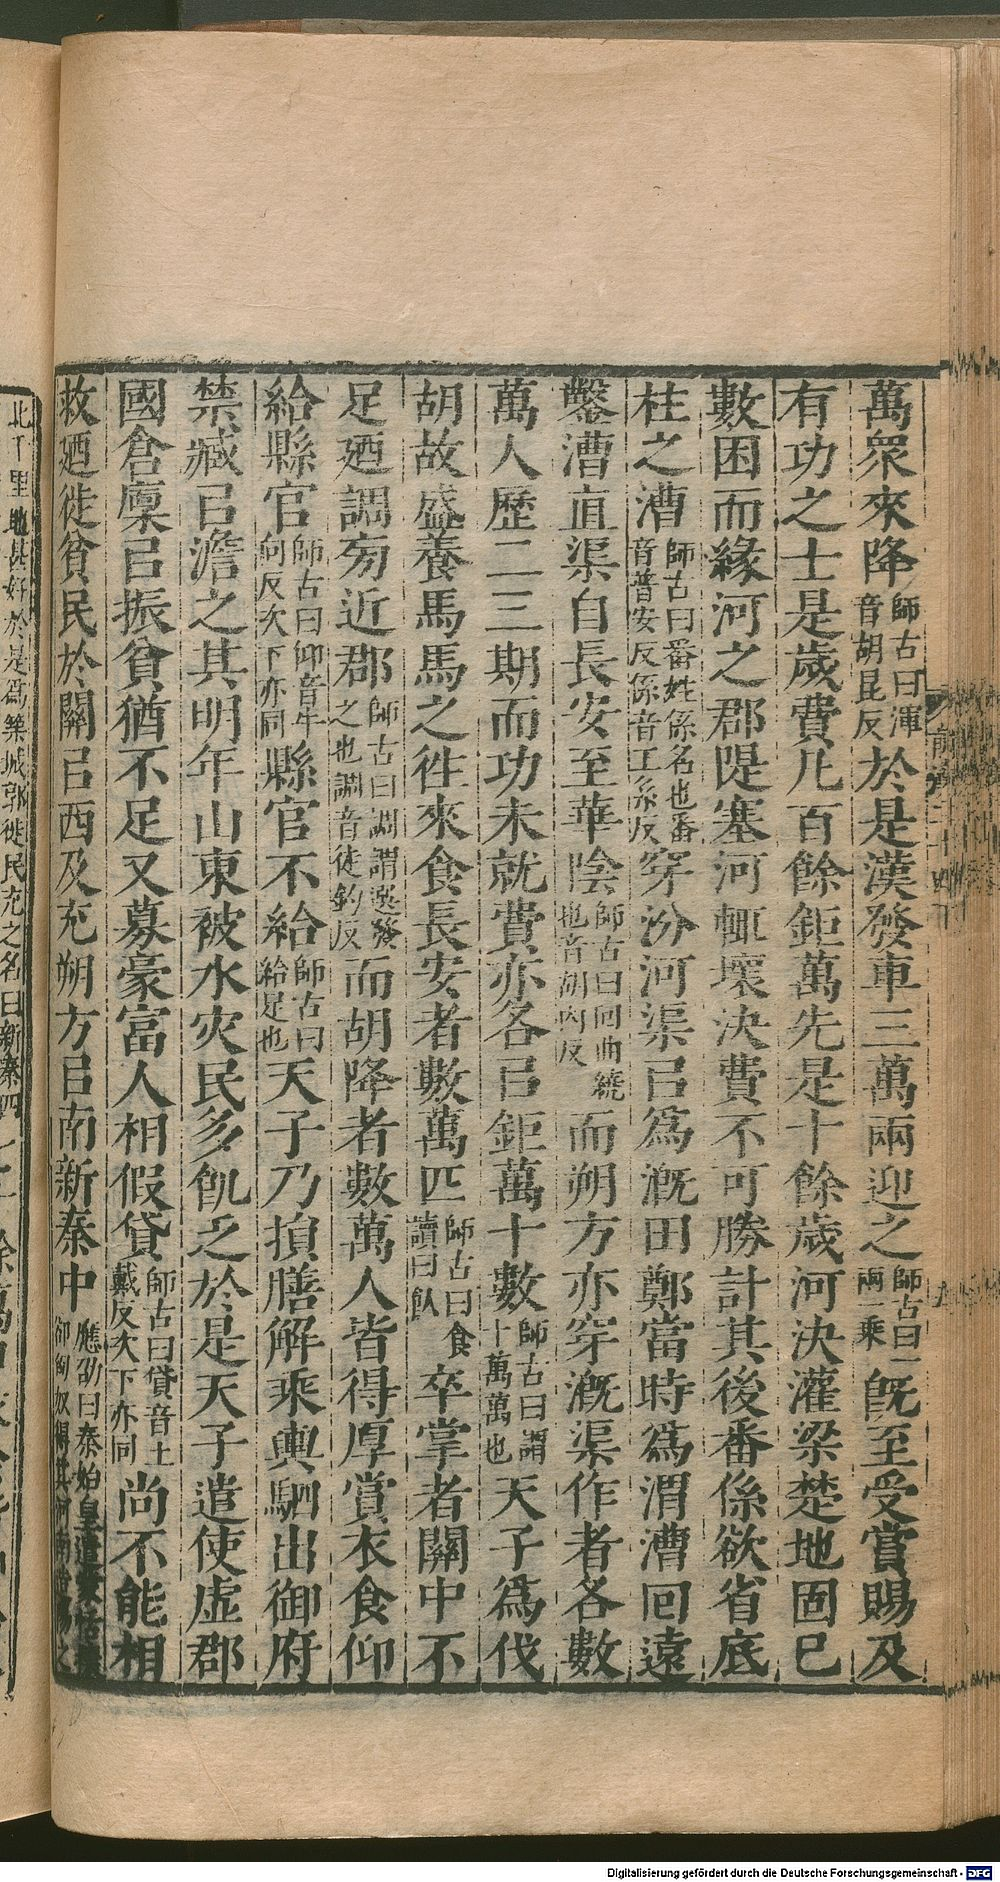 萬衆來降師古曰渾音胡昆反於是漢發車三萬兩迎之師古曰一兩一乘旣至受賞賜及
有功之士是歲費凡百餘鉅萬先是十餘歲河決灌梁楚地固已
數困而緣河之郡隄塞河輒壞決費不可勝計其後番係欲省底
柱之漕師古曰番姓係名也番音普安反係音工系反穿汾河渠㠯爲漑田鄭當時爲渭漕回遠
鑿漕直渠自長安至華陰師古曰回曲繞也音胡內反而朔方亦穿漑渠作者各數
萬人歷二三期而功未就費亦各㠯鉅萬十數師古曰謂十萬萬也天子爲伐
胡故盛養馬馬之往來食長安者數萬匹師古曰食讀曰飤卒掌者關中不
足廼調旁近郡師古曰調謂選發之也調音徒釣反而胡降者數萬人皆得厚賞衣食仰
給縣官師古曰仰音牛向反次下亦同縣官不給師古曰給足也天子乃損膳解乘輿駟出御府
禁臧㠯澹之其明年山東被水灾民多飢乏於是天子遣使虛郡
國倉廩㠯振貧猶不足又募豪富人相假貸師古曰貸音土戴反次下亦同尚不能相
救廼徙貧民於關㠯西及充朔方㠯南新秦中應劭曰秦始皇遣蒙恬攘卻匈奴得其河南造陽之
北千里地甚好於是爲築城郭徙民充之名曰新秦四
Digitalisierung gefördert durch die Deutsche Forschungsgemeinschaft - DFG